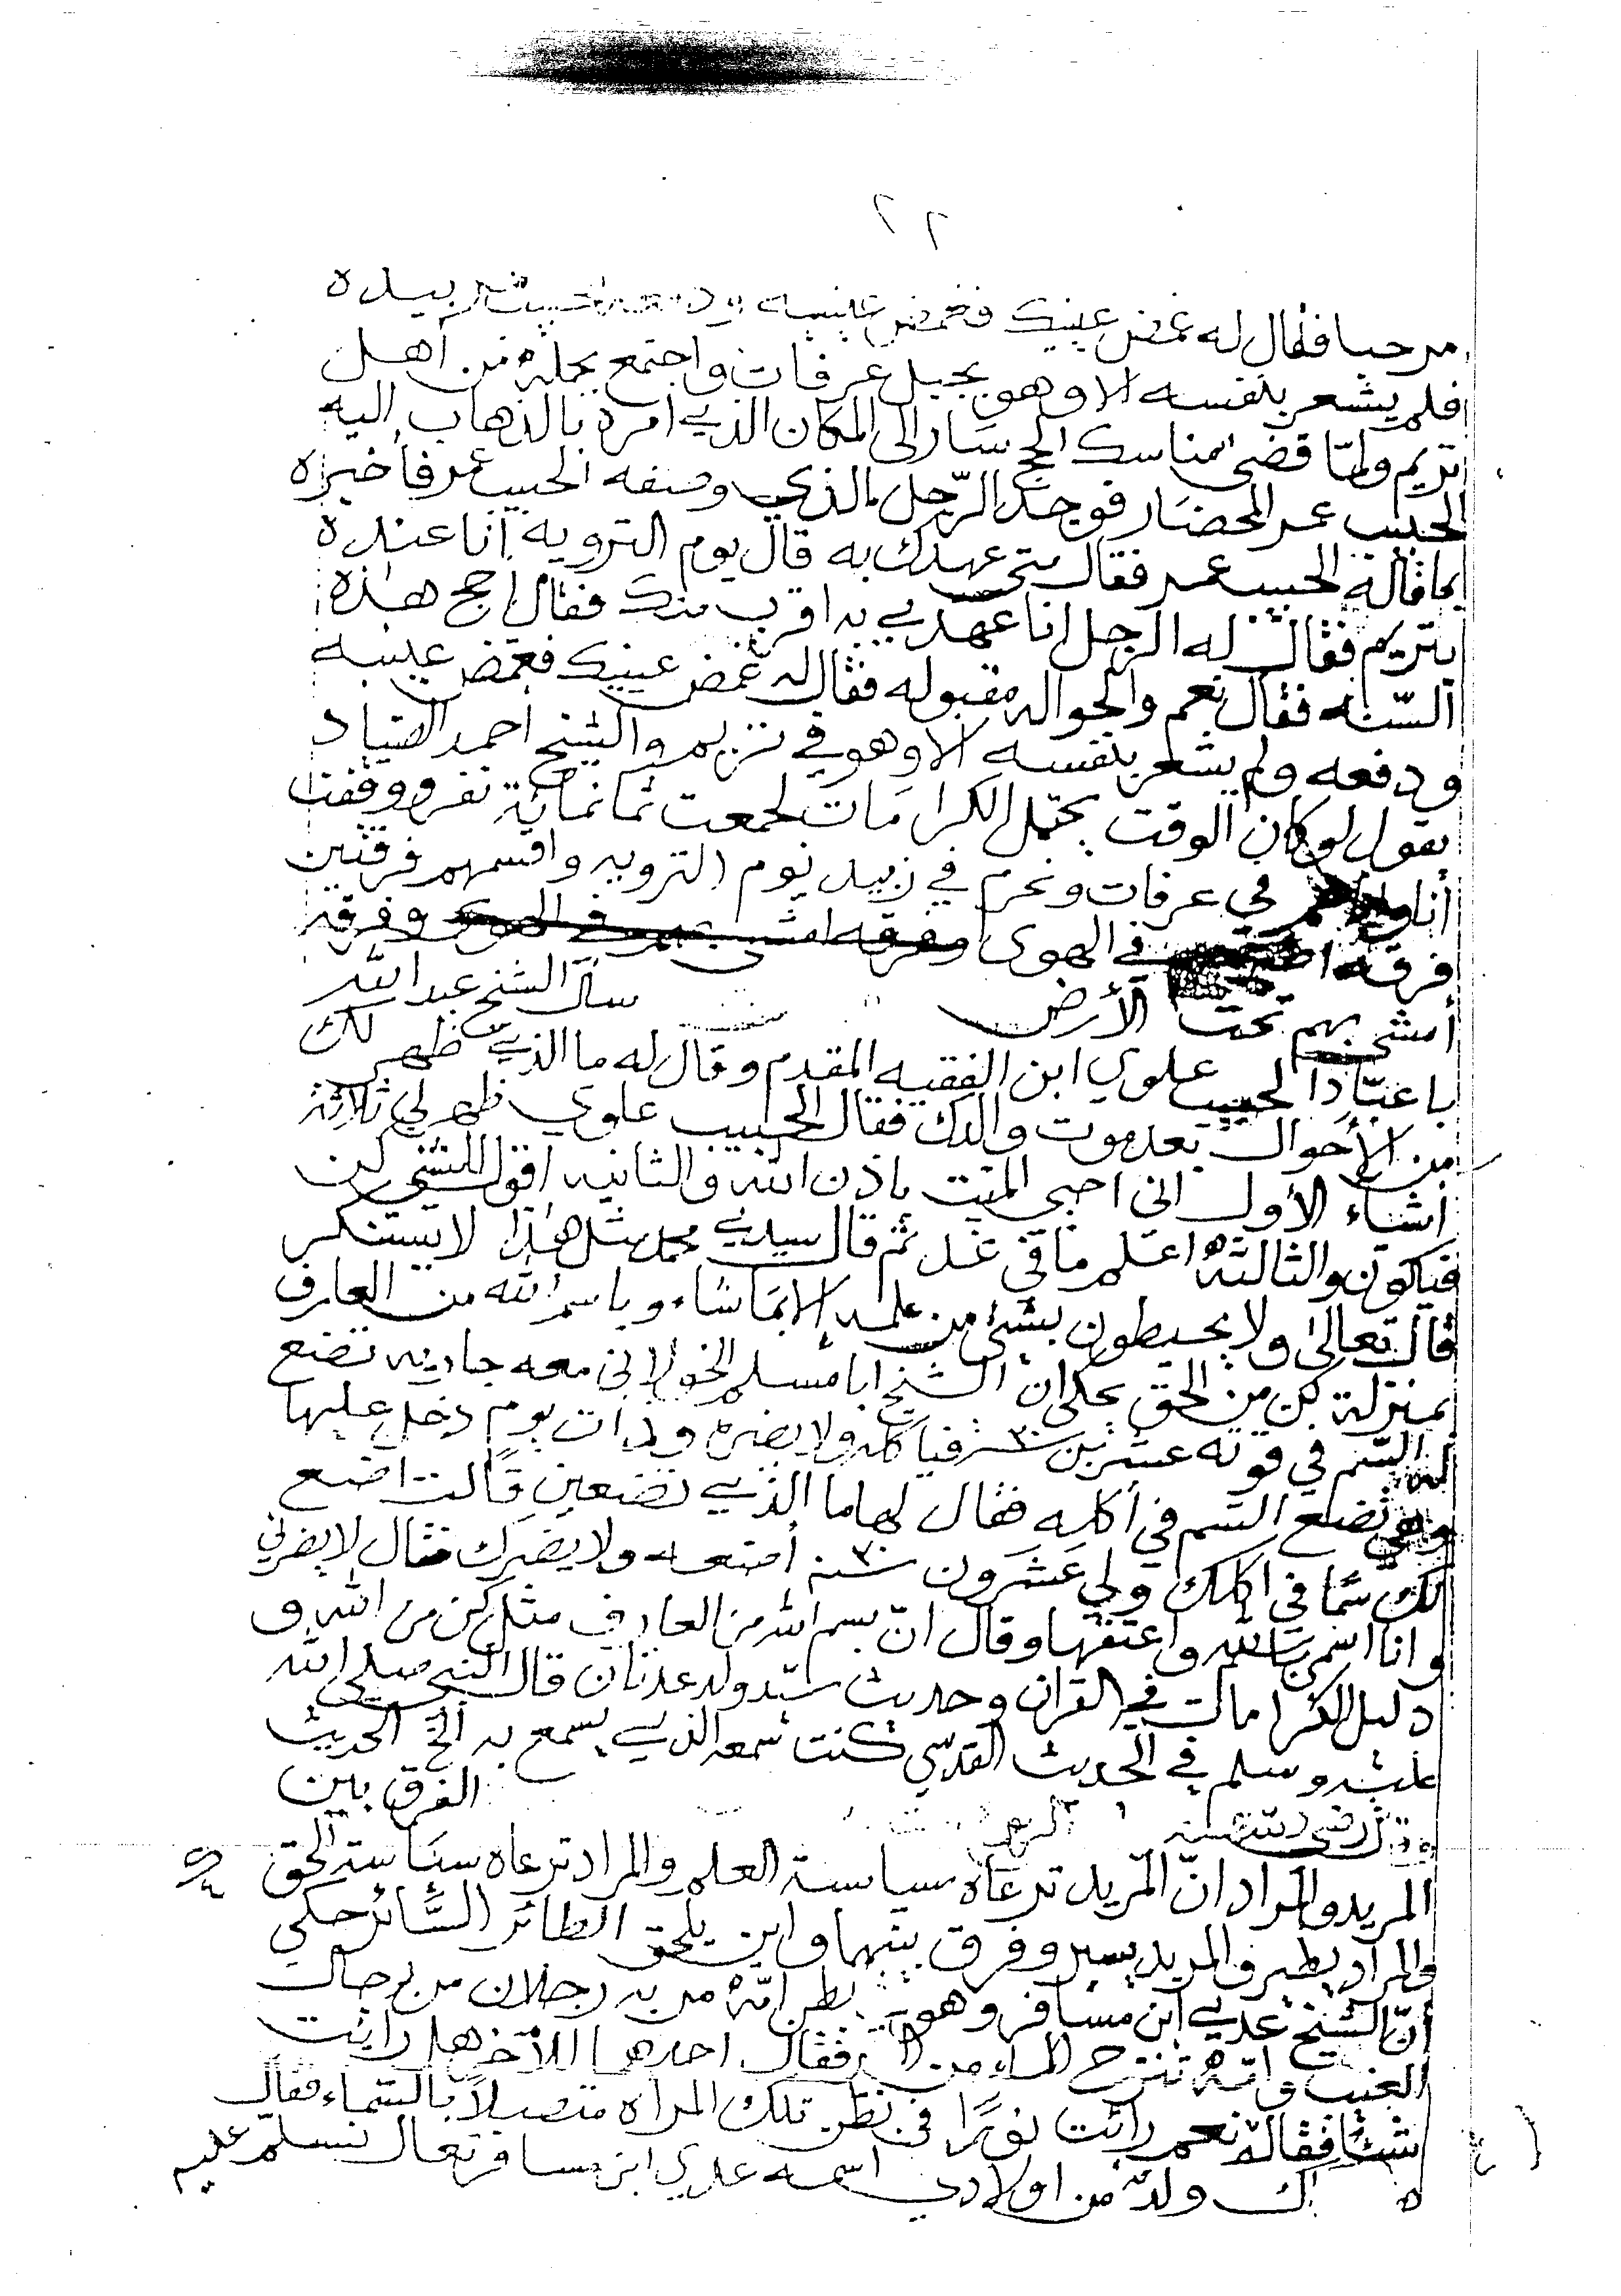 ٢٢
مرحبا فقال له غمض عينيك فغمض عينيه الحبيب بيده
فلم يشعر بنفسه الا وهو بجبل عرفات واجتمع بجملة من أهل
تريم ولمّا قضى مناسك الحج سار الى المكان الذي امره بالذهاب اليه
الحبيب عمر المحضار فوجد الرّجل الذي وصفه الحبيب عمر فأخبره
بما قاله الحبيب عمر فقال متى عهدك به قال يوم الترويه أنا عنده
بتريم فقال له الرجل انا عهدي به اقرب منك فقال احج هذه
السّنه فقال نعم والحواله مقبوله فقال له غمض عينيك فغمض عينيه
ودفعه ولم يشعر بنفسه الا وهو في تريم والشيخ احمد الصياد
يقول لو كان الوقت يحتمل الكرامات لجمعت ثمانمائة نفر ووقفت
أنا في عرفات ونحرم في زبيد يوم الترويه واقسمهم فرقتين
فرقه في الهوى وفرقه امشي بهم في الهوى وفرقه
أمشي بهم تحت الأرض سأل الشيخ عبدالله
باعبّاد الحبيب علوي ابن الفقيه المقدم وقال له ما الذي ظهر لك
من الأحوال بعد موت والدك فقال الحبيب علوي ظهر لي ثلاثة
اشياء الأول اني احيي الميّت باذن الله والثانيه اقول للشيء كن
فيكون والثالثه اعلم ما في غد ثم قال سيدي محمد مثل هذا لا يستنكر
قال تعالى ولا يحيطون بشيء من علمه إلا بما شاء وباسم الله من العارف
بمنزلة كن من الحق يحكى ان الشيخ ابا مسلم الخولاني معه جاريه تضع
له السّم في قوته عشرين سنه فيأكله ولا يضره وذات يوم دخل عليها
وهي تضع السم في أكله فقال لها ما الذي تضعين قالت اضع
لك سمًّا في اكلك ولي عشرون سنه أضعه ولا يضرك فقال لا يضرني
وانا اسمي بالله واعتقها وقال انّ بسم الله من العارف مثل كن من الله و
دليل الكرامات في القران وحديث سيّد ولد عدنان قال النبي صلى الله
عليه وسلم في الحديث القدسي كنت سمعه الذي يسمع به الخ الحديث
الفرق بين
المريد والمراد انّ المريد ترعاه سياسة العلم والمراد ترعاه سياسة الحق
والمراد يطير والمريد يسير وفرق بينهما واين يلحق الطائر السّائر حكي
أنّ الشيخ عدي ابن مسافر وهو بطن امّه مر به رجلان من رجال
الغيب وامّه تنزح الماء من البئر فقال احدهما للآخر هل رايت
شيئًا فقال نعم رائت نورًا في بطن تلك المراه متصلاً بالسّماء فقال
ولد من اولادي اسمه عدي ابن مسافر تعال نسلم عليه